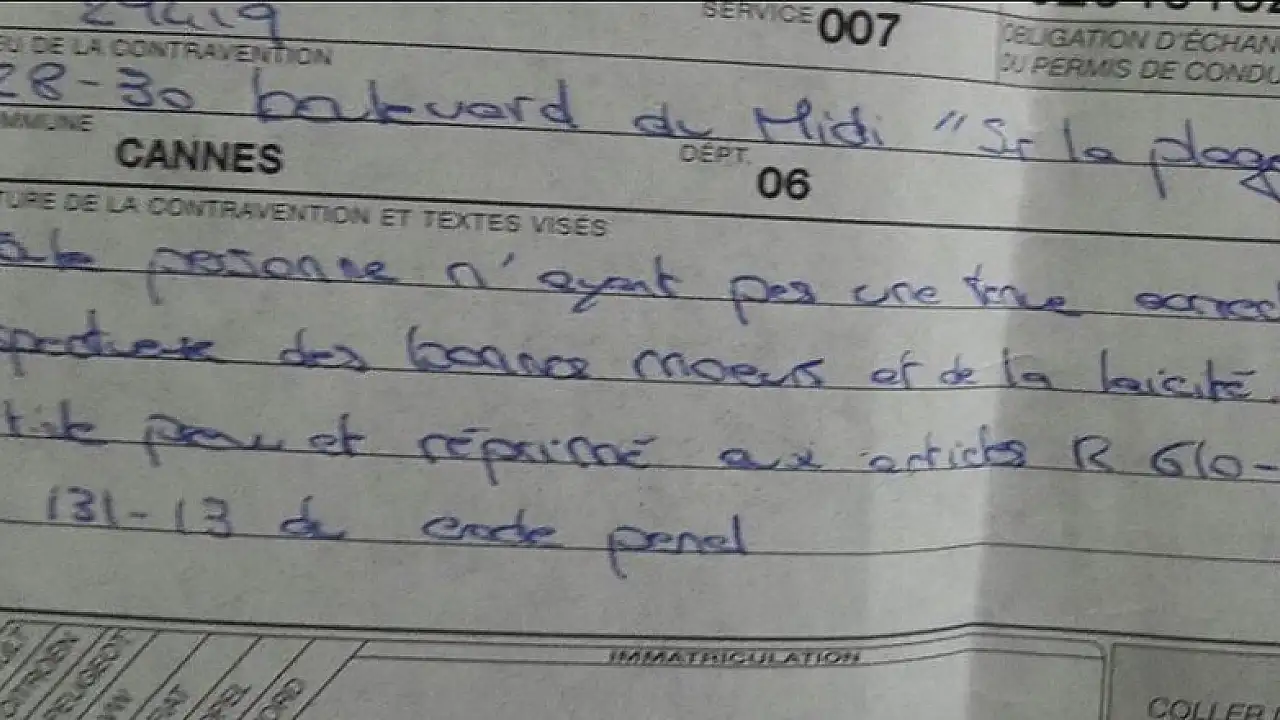 29419
SERVICE 007
OBLIGATION D'ÉCHAN
DU PERMIS DE CONDU
EU DE LA CONTRAVENTION
28-30 boulevard du Midi "Sr la plage
MMUNE
CANNES
DÉPT. 06
TURE DE LA CONTRAVENTION ET TEXTES VISÉS
personne n'ayant pas une tenue correc
spectueuse des bonnes moeurs et de la laicité.
et réprimé aux articles R 610-
131-13 du code penal
IMMATRICULATION
COLLER